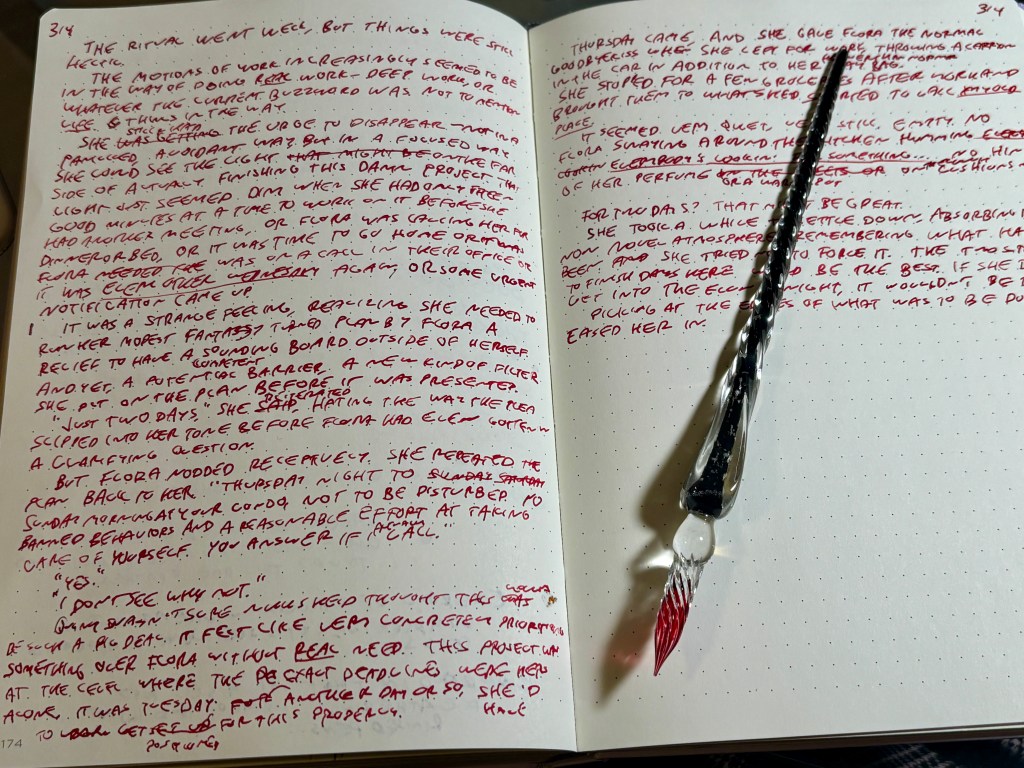 3/4
THE RITUAL WENT WELL, BUT THINGS WERE STILL
HECTIC.
THE MOTIONS OF WORK INCREASINGLY SEEMED TO BE
IN THE WAY OF DOING REAL WORK - DEEP WORK, OR
WHATEVER THE CURRENT BUZZWORD WAS. NOT TO MENTION
LIFE & THINGS IN THE WAY.
STILL HAD
SHE WAS GETTING THE URGE TO DISAPPEAR - NOT IN A
PANICKED, AVOIDANT WAY BUT IN A FOCUSED WAY.
SHE COULD SEE THE LIGHT THAT MIGHT BE ON THE FAR
SIDE OF ACTUALLY FINISHING THIS DAMN PROJECT. THAT
LIGHT JUST SEEMED DIM WHEN SHE HAD ONLY FIFTEEN
GOOD MINUTES AT A TIME TO WORK ON IT BEFORE SHE
HAD ANOTHER MEETING, OR FLORA WAS CALLING HER FOR
DINNER OR BED, OR IT WAS TIME TO GO HOME OR
FLORA NEEDED WAS ON A CALL IN THEIR OFFICE OR
IT WAS AGAIN, OR SOME URGENT
NOTIFICATION CAME UP.
IT WAS A STRANGE FEELING, REALIZING SHE NEEDED TO
RUN HER MOPEST FANTASY TURNED PLAN BY FLORA. A
RELIEF TO HAVE A SOUNDING BOARD OUTSIDE OF HERSELF.
COMPETENT
AND YET, A POTENTIAL BARRIER. A NEW KIND OF FILTER
SHE PUT ON THE PLAN BEFORE IT WAS PRESENTED.
REITERATED
"JUST TWO DAYS" SHE SAID, HATING THE WAY THE PLEA
SLIPPED INTO HER TONE BEFORE FLORA HAD EVEN GOTTEN IN
A CLARIFYING QUESTION.
BUT FLORA NODDED RECEPTIVELY. SHE REPEATED THE
PLAN BACK TO HER. "THURSDAY NIGHT TO SUNDAY
SUNDAY MORNING AT YOUR CONDO, NOT TO BE DISTURBED. NO
BANNED BEHAVIORS AND A REASONABLE EFFORT AT TAKING
CARE OF YOURSELF. YOU ANSWER IF I CALL."
"YES."
"I DON'T SEE WHY NOT."
WOULD
WASN'T SURE SHE'D THOUGHT THIS WAS
BE SUCH A BIG DEAL. IT FELT LIKE VERY CONCRETELY PRIORITIZING
SOMETHING OVER FLORA WITHOUT REAL NEED. THIS PROJECT WAS
AT THE LEVEL WHERE THE EXACT DEADLINES WERE HERS
ALONE. IT WAS TUESDAY. ANOTHER DAY OR SO, SHE'D
HAVE
TO GET SET UP FOR THIS PROPERLY.
174
3/4
THURSDAY CAME, AND SHE GAVE FLORA THE NORMAL
GOODBYE KISS WHEN SHE LEFT FOR WORK, THROWING A CARRYON
IN THE CAR IN ADDITION TO HER NORMAL BAG.
SHE STOPED FOR A FEW GROCERIES AFTER WORK AND
BROUGHT THEM TO WHAT SHE'D STARTED TO CALL MY OLD
PLACE.
IT SEEMED VERY QUIET, VERY STILL, EMPTY. NO
FLORA SWAYING AROUND THE KITCHEN HUMMING
SOMETHING... NO HINT
OF HER PERFUME ON CUSHIONS
FOR TWO DAYS? THAT MIGHT BE GREAT.
SHE TOOK A WHILE TO SETTLE DOWN, ABSORBING
NOW NOVEL ATMOSPHERE, REMEMBERING WHAT HAD
BEEN. AND SHE TRIED NOT TO FORCE IT. THE TWO
TO FINISH DAYS HERE WOULD BE THE BEST. IF SHE
GET INTO THE TONIGHT, IT WOULDN'T BE
PICKING AT THE EDGES OF WHAT WAS TO BE
EASED HER IN.